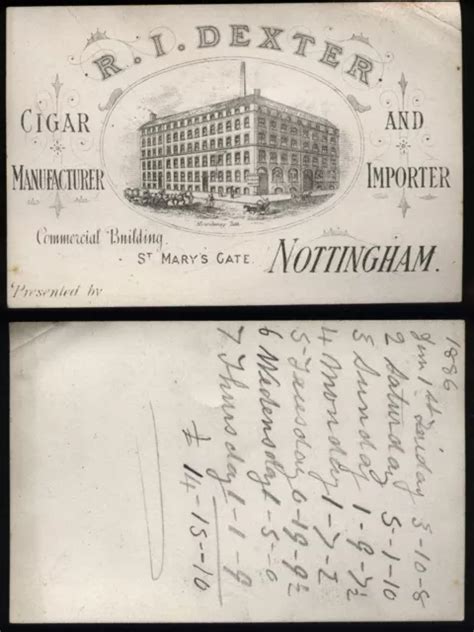 R. I. DEXTER.
CIGAR AND
MANUFACTURER IMPORTER
Commercial Building.
ST MARY'S GATE. NOTTINGHAM.
Presented by
1886
Jan 1st Friday 3-10-8
2 Saturday 5-1-10
3 Sunday 1-9-7½
4 Monday 1-7-2
5-Tuesday 0-19-9½
6 Wedensday 1-5-0
7 Thursday 1-1-9
£ 14-15-10